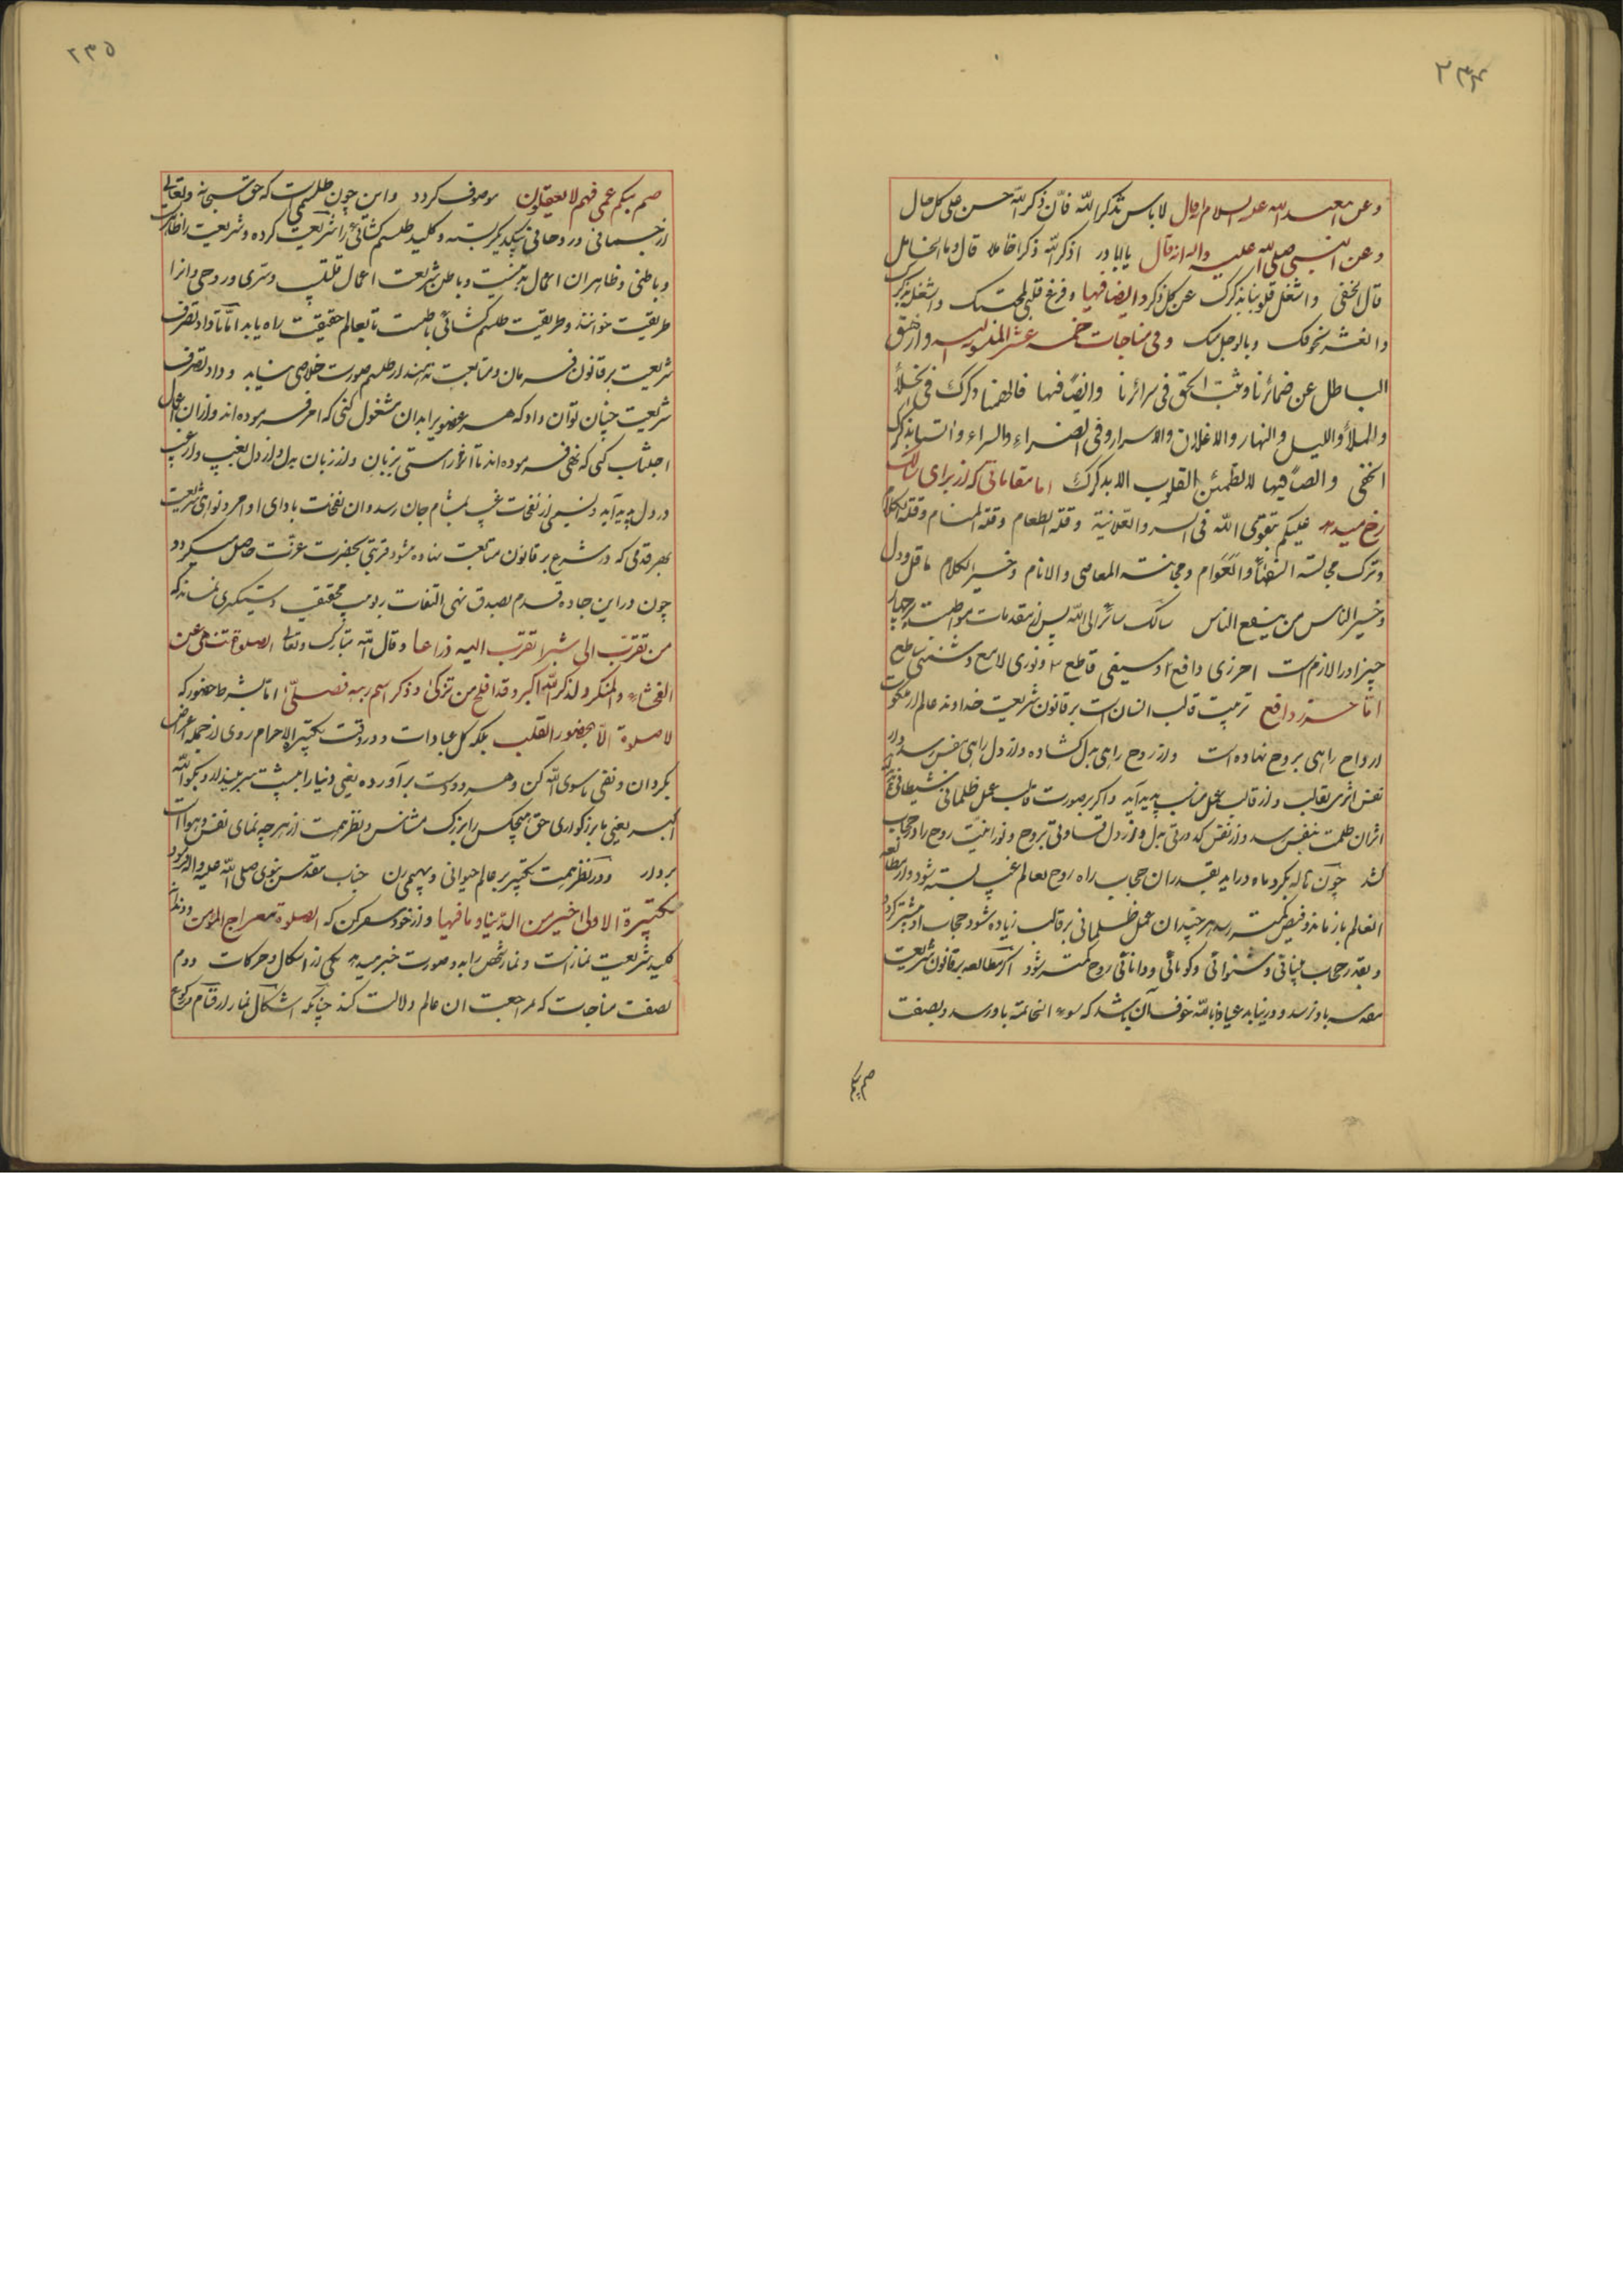 ۲۳۴
وعن ابیعبد الله علیه السلام انه قال لا باس بذکر الله فانّ ذکر الله حسن علی کل حال
وعن النبی صلی الله علیه واله انه قال یا ابا ذر اذکر الله ذکرا خاملا قال وما الخامل
قال الخفی واشغل قلوبنا بذکرک عن کل ذکر وایضا فیها وفرغ قلبی لمحبتک واشغله بذکرک
وانعشه بخوفک وبالوجل منک وفی مناجات خمسه عشر المنسوبه الیه وازهق
الباطل عن ضمائرنا وثبت الحق فی سرائرنا وایضًا فیها فالهمنا ذکرک فی الخلأ
والملأ واللیل والنهار والاعلان والاسرار وفی الضراءِ والسراء وآنسنا بذکرک
الخفی وایضًا فیها لا تطمئن القلوب الا بذکرک اما مقاماتی که از برای سالک
رخ میدهد علیکم بتقوی الله فی السر والعلانیة وقلة الطعام وقلة المنام وقلة الکلام
وترک مجالسة السفهاء والعوام ومجانبة المعاصی والاثام وخیر الکلام ما قل ودل
وخیر الناس من ینفع الناس سالک سائر الی الله پس از مقدمات مواظبت بر چهار
چیز او را لازم است حرزی دافع وسیفی قاطع ونوری لامع وشمسی ساطع
اما حرز دافع تربیت قالب انسان است بر قانون شریعت خداوند عالم از ملکوت
ارواح راهی بروح نهاده است واز روح راهی بدل گشاده واز دل راهی بنفس رسد واز
نفس اثری بقالب واز قالب عمل مناسب پدید آید واگر بر صورت قالب عمل ظلمانی شیطانی
اثر آن ظلمت بنفس رسد واز نفس کدورتی بدل واز دل قساوتی بروح ونورانیت روح را در حجاب
کشد چون هاله بگرد ماه دراید بقدر ان حجاب راه روح بعالم غیب بسته شود واز مطالعه
انعالم باز ماند وفیض کمتر رسد هر چندان عمل ظلمانی بر قالب زیاده شود حجاب او بیشتر گردد
وبقدر حجاب بینائی وشنوائی وگویائی ودانائی روح کمتر شود اگر مطالعه بر قانون شریعت
باو نرسد ودر نیابد عیاذا بالله خوف آن باشد که سوء الخاتمه باو رسد وبصفت
صم بکم
۲۳۵
صم بکم عمی فهم لا یعقلون موصوف گردد واین چون طلسمی است که حق سبحانه وتعالی
از جسمانی وروحانی بیکدیگر بسته وکلید طلسم گشائی را شریعت کرده وشریعت را ظاهری
وباطنی وظاهر ان اعمال بدنیست وباطن شریعت اعمال قلبی وسری وروحی وانرا
طریقت خوانند وطریقت طلسم گشائی باطنست تا بعالم حقیقت راه یابد اما تا داد تصرف
شریعت بر قانون فرمان ومتابعت ندهند از طلسم صورت خلاصی نیابد وداد تصرف
شریعت چنان توان داد که هر عضویرا بدان مشغول کنی که امر فرموده اند واز ان اعمال
اجتناب کنی که نهی فرموده اند تا اثر راستی بزبان واز زبان بدل واز دل بغیب واز غیب
در دل پدید آید ونسیمی از نفحات غیب بمشام جان رسد وان نفحات بادای اوامر ونواهی شریعت
بهر قدمی که در شرع بر قانون متابعت نهاده شود قربتی بحضرت عزت حاصل میگردد
چون در این جاده قدم بصدق نهی التفات ربوبیت بحقیقت دستگیری نماید که
من تقرب الی شبرا تقربت الیه ذراعا وقال الله تبارک وتعالی الصلوة تنهی عن
الفحشاء والمنکر ولذکر الله اکبر وقد افلح من تزکی وذکر اسم ربه فصلّی اما بشرط حضور که
لا صلوة الا بحضور القلب بلکه کل عبادات ودر وقت تکبیرة الاحرام روی از جمله اعراض
بگردان ونفی ما سوی الله کن وهر دو دست برآورده یعنی دنیا را بپشت سر بینداز وبگو الله
اکبر یعنی با بزرگواری حق هیچکس را بزرگ مشناس ونظر همت از هر چه نمای نفس وهواست
بردار ودر نظر همت تکبیر بر عالم حیوانی وبهیمی زن جناب مقدس نبوی صلی الله علیه واله فرمود
تکبیرة الاولی خیر من الدنیا وما فیها واز خود سفر کن که الصلوة معراج المؤمن
کلید شریعت نماز است ونماز شخص را بدو صورت خبر میدهد یکی از اشکال وحرکات دوم
بصفت مناجات که مراجعت ان عالم دلالت کند چنانکه اشکال نماز از قیام رکوع